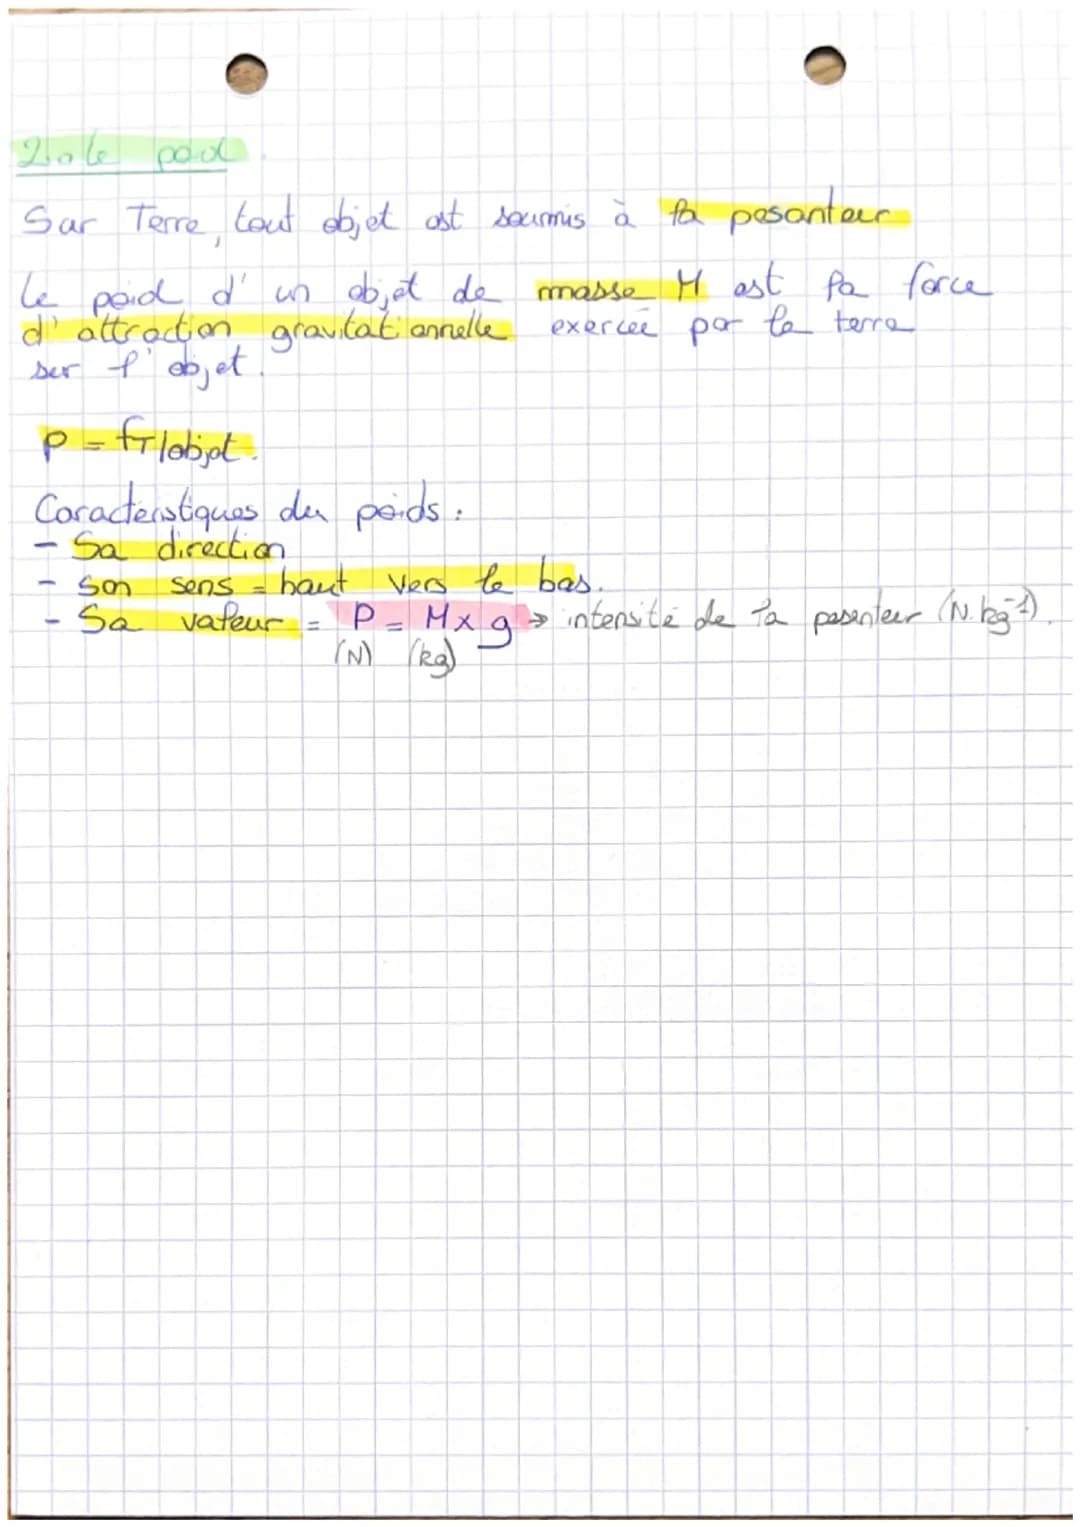 2.a le poid.
Sur Terre, tout objet est soumis à la pesanteur
Le poid d'un objet de masse M est la force
d'attraction gravitationnelle exercée par la terre
sur l'objet.
P = fT/objet.
Caractéristiques du poids :
- Sa direction
- Son sens = haut vers le bas.
- Sa valeur = P = M x g → intensité de la pesanteur (N.kg⁻¹).
(N) (kg)